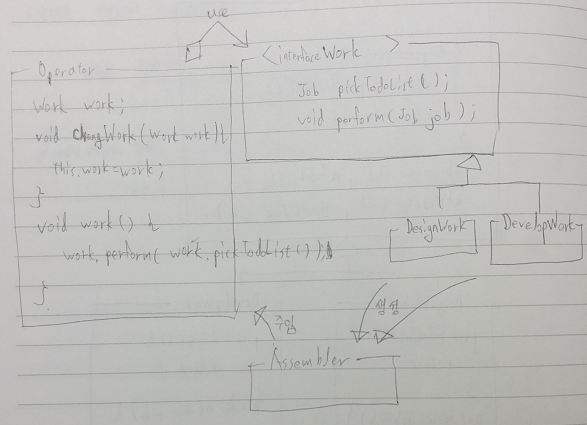 use
Operator
Work work;
void changWork(Work work){
this.work=work;
}
void work() {
work.perform( work.pickTodoList());
}
<interface Work >
Job pickTodoList();
void perform(Job job);
DesignWork
DevelopWork
생성
주입
Assembler